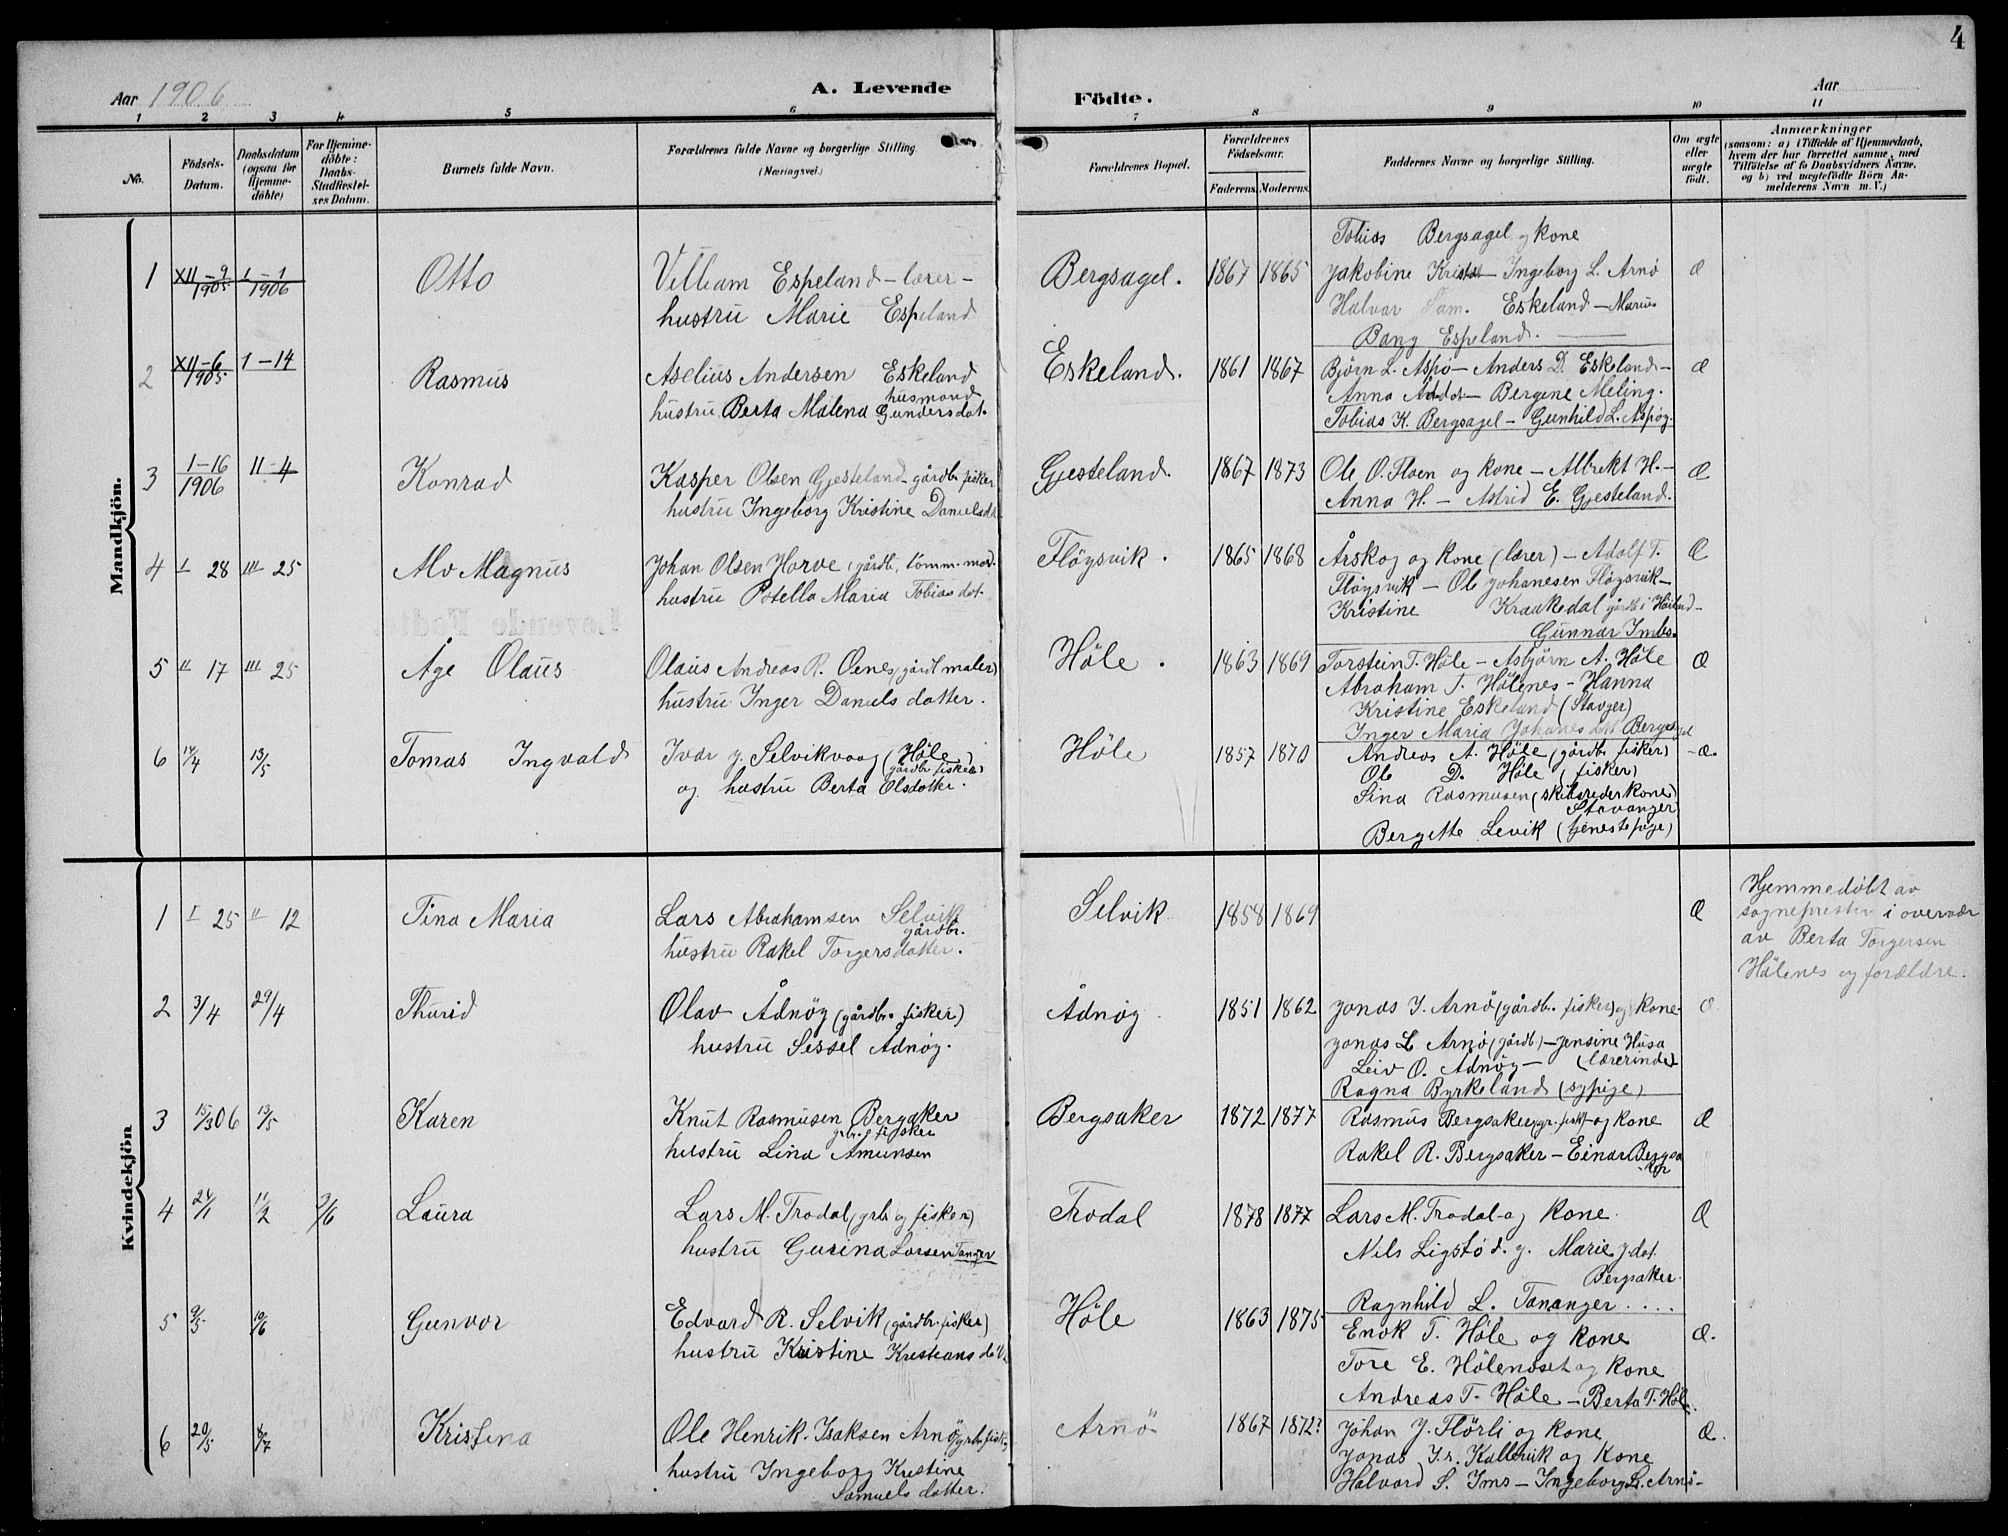 4
Aar 1906
A. Levende
Födte.
Aar
1 2 3 4 5 6 7 8 9 10 11
No.
Födsels-Datum.
Daabsdatum (ogsaa for Hjemme-döbte)
For Hjemme-döbte: Daabs-Stadfæstel-ses Datum.
Barnets fulde Navn.
Forældrenes fulde Navne og borgerlige Stilling
(Næringsvei.)
Forældrenes Bopæl.
Forældrenes Födselsaar.
Faderens. Moderens.
Faddernes Navne og borgerlige Stilling.
Om ægte eller uægte födt.
Anmærkninger
(saasom: a) i Tilfælde af Hjemmedaab,
hvem der har forrettet samme, med
Tilföielse af to Daabsvidners Navne,
og b) ved uægtefödte Börn An-
melderens Navn m. V.)
Mandkjön.
1 XII-9 1905 1-1 1906 Otto
Villiam Espeland - lærer -
hustru Marie Espeland
Bergsagel. 1867 1865
Tobias Bergsagel og kone
Jakobine Ingeborg L. Arnö
Halvar Sam. Eskeland - Marius
Bang Espeland.
Æ
2 XII-6 1905 1-14 Rasmus
Aselius Andersen Eskeland
husmand
hustru Berta Malena Gundersdat.
Eskeland. 1861 1867
Björn L. Aspö - Anders D. Eskeland -
Anna - Bergene Meling.
Tobias K. Bergsagel - Gunhild L. Aspög.
Æ
3 1-16 1906 II-4 Konrad
Kasper Olsen Gjesteland - gårdbr. fisker
hustru Ingeborg Kristine Danielsd.
Gjesteland. 1867 1873
Ole O. Floen og kone - Albrekt H. -
Anna H. - Astrid E. Gjesteland.
Æ
4 I 28 III 25 Alv Magnus
Johan Olsen Horve (gårdb., tömm.
hustru Maria Tobiasdat.
Flöysvik. 1865 1868
Årskog og kone (lærer) - Adolf T.
Flöysvik - Ole Johanesen Flöysvik -
Kristine Kraakedal
Gunnar Imbs.
Æ
5 II 17 III 25 Åge Olaus
Olaus Andreas R. Oenes (gårdb. maler)
hustru Inger Danielsdatter.
Höle. 1863 1869
Torstein T. Höle - Asbjörn A. Höle
Abraham T. Hölenes - Hanna
Kristine Eskeland (Stavger)
Inger Maria Johannesdat Bergsagel
Æ
6 14/4 13/5 Tomas Ingvald
Ivar J. Selvikvaag (Höle)
(gårdbr. fisker)
og hustru Berta Olsdatter.
Höle 1857 1870
Andreas A. Höle (gårdbr. fisker)
Ole D. Höle (fisker)
Sina Rasmusen (skibsrederkone)
Stavanger
Bergitte Levik (tjenestepige)
æ.
Kvindekjön
1 I 25 II 12 Tina Maria
Lars Abrahamsen Selvik
gårdbr.
hustru Rakel Torgersdatter.
Selvik 1858 1869
Æ
Hjemmedöbt av
sognepresten i overvær
av Berta Torgersen
Hölenes og forældre.
2 3/4 29/4 Thurid
Olav Ådnöy (gårdbr. fisker)
hustru Sessel Ådnöy.
Ådnöy 1851 1862
Jonas J. Arnö (gårdbr. fisker) og kone.
Jonas L. Arnö (gårdb) - Jensine Husa
Leiv O. Ådnöy - (lærerinde)
Ragna Byrkeland (sypige)
3 15/3 06 13/5 Karen
Knut Rasmusen Bergsaker
grb. og fisker
hustru Lina Amunsen
Bergsaker 1872 1877
Rasmus Bergsaker (gr. fisk) og kone
Rakel R. Bergsaker - Einar Bergsa
ker
Æ
4 24/1 11/2 Laura
Lars M. Frodal (grb. og fisker)
hustru Gurina Larsen Tananger
Frodal 1878 1877
Lars M. Frodal og kone.
Nils Ligstöd. g. Marie Jdat.
Bergsaker
Ragnhild L. Tananger ....
Æ
5 9/5 10/6 Gunvor
Edvard R. Selvik (gårdbr. fisker)
hustru Kristine
Höle 1863 1875
Enok T. Höle og kone
Tore E. Hölenoset og kone
Andreas T. Höle - Berta T. Höle.
æ.
6 20/5 8/7 Kristina
Ole Henrik Isaksen Arnö
hustru Ingeborg Kristine
Samuelsdatter.
Arnö 1867 1872?
Johan J. Flörli og kone
Jonas Kallevik og kone
Halvard S. Ims - Ingeborg L. Arnö -
æ.